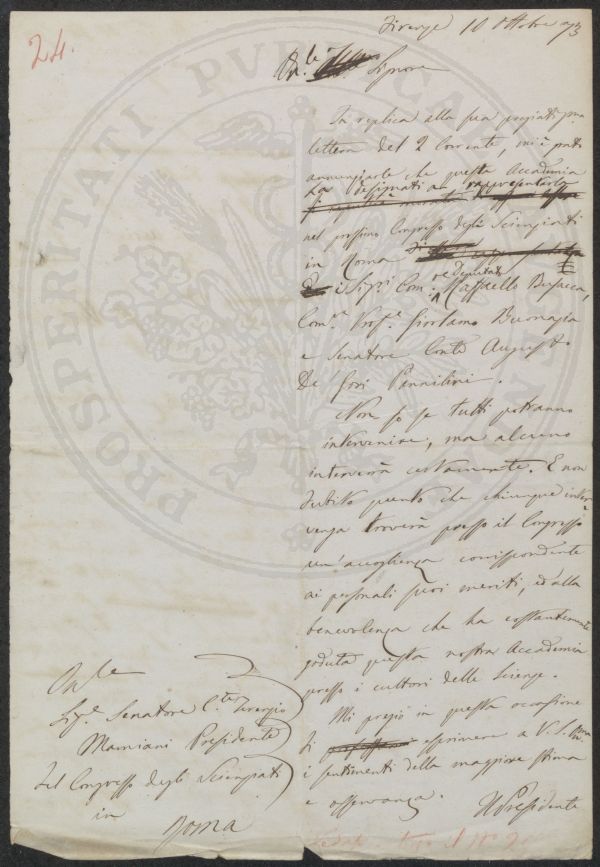 24.
Firenze 10 Ottobre 73
On.le Signore
In replica alla sua pregiatissma
lettera del 2 Corrente, mi è grato
annunziarle che questa Accademia
ha designati a rappresentarla
nel prossimo Congresso degli Scienziati
in Roma
i Sigri Com.re Deputato Raffaello Busacca,
Com.re Prof.e Girolamo Buonazia
e Senatore Conte Augusto
De Gori Pannilini.
Non so se tutti potranno
intervenire, ma alcuno
interverrà certamente. E non
dubito punto che chiunque inter
venga troverà presso il Congresso
un'accoglienza corrispondente
ai personali suoi meriti, ed alla
benevolenza che ha costantemente
goduta questa nostra Accademia
presso i cultori delle Scienze.
Mi pregio in questa occasione
di esprimere a V.S. Onma
i sentimenti della maggiore stima
e osservanza.
Il Presidente
On.le
Sig.e Senatore C.te Terenzio
Mamiani Presidente
del Congresso degli Scienziati
in
Roma
PROSPERITATI PUBLICAE